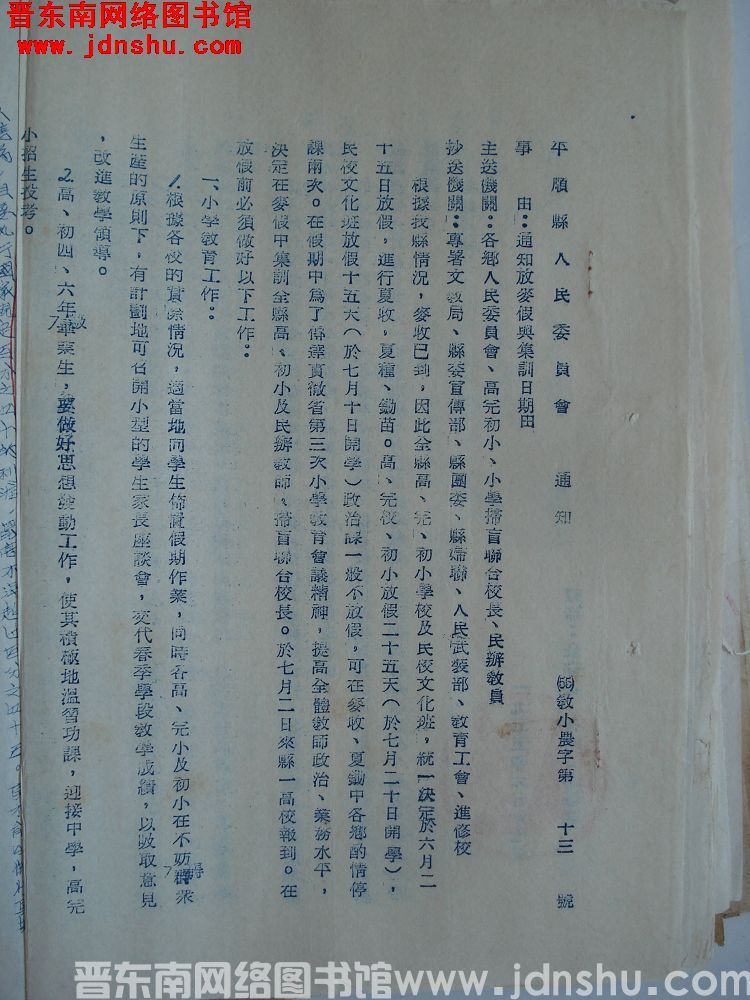 晋东南网络图书馆
www.jdnshu.com
平順縣人民委員會 通知
(56)教小農字第 十三 號
事 由：通知放麥假與集訓日期由
主送機關：各鄉人民委員會、高完初小、小學掃盲聯合校長、民辦教員
抄送機關：專署文教局、縣委宣傳部、縣團委、縣婦聯、人民武裝部、教育工會、進修校
根據我縣情況，麥收已到，因此全縣高、完、初小學校及民校文化班，統一決定於六月二
十五日放假，進行夏收，夏種、鋤苗。高、完校、初小放假二十五天（於七月二十日開學），
民校文化班放假十五天（於七月十日開學）政治課一般不放假，可在麥收、夏鋤中各鄉酌情停
課兩次。在假期中爲了傳達貫徹省第三次小學教育會議精神，提高全體教師政治、業務水平，
決定在麥假中集訓全縣高、初小及民辦教師、掃盲聯合校長。於七月二日來縣一高校報到。在
放假前必須做好以下工作：
一、小學教育工作：
1.根據各校的實際情況，適當地向學生佈置假期作業，同時各高、完小及初小在不妨碍羣眾
生產的原則下，有計劃地可召開小型的學生家長座談會，交代春季學段教學成績，以吸取意見
，改進教學領導。
2.高、初四、六年畢業生，要做好思想發動工作，使其積極地溫習功課，迎接中學，高完
小招生投考。
晋东南网络图书馆www.jdnshu.com